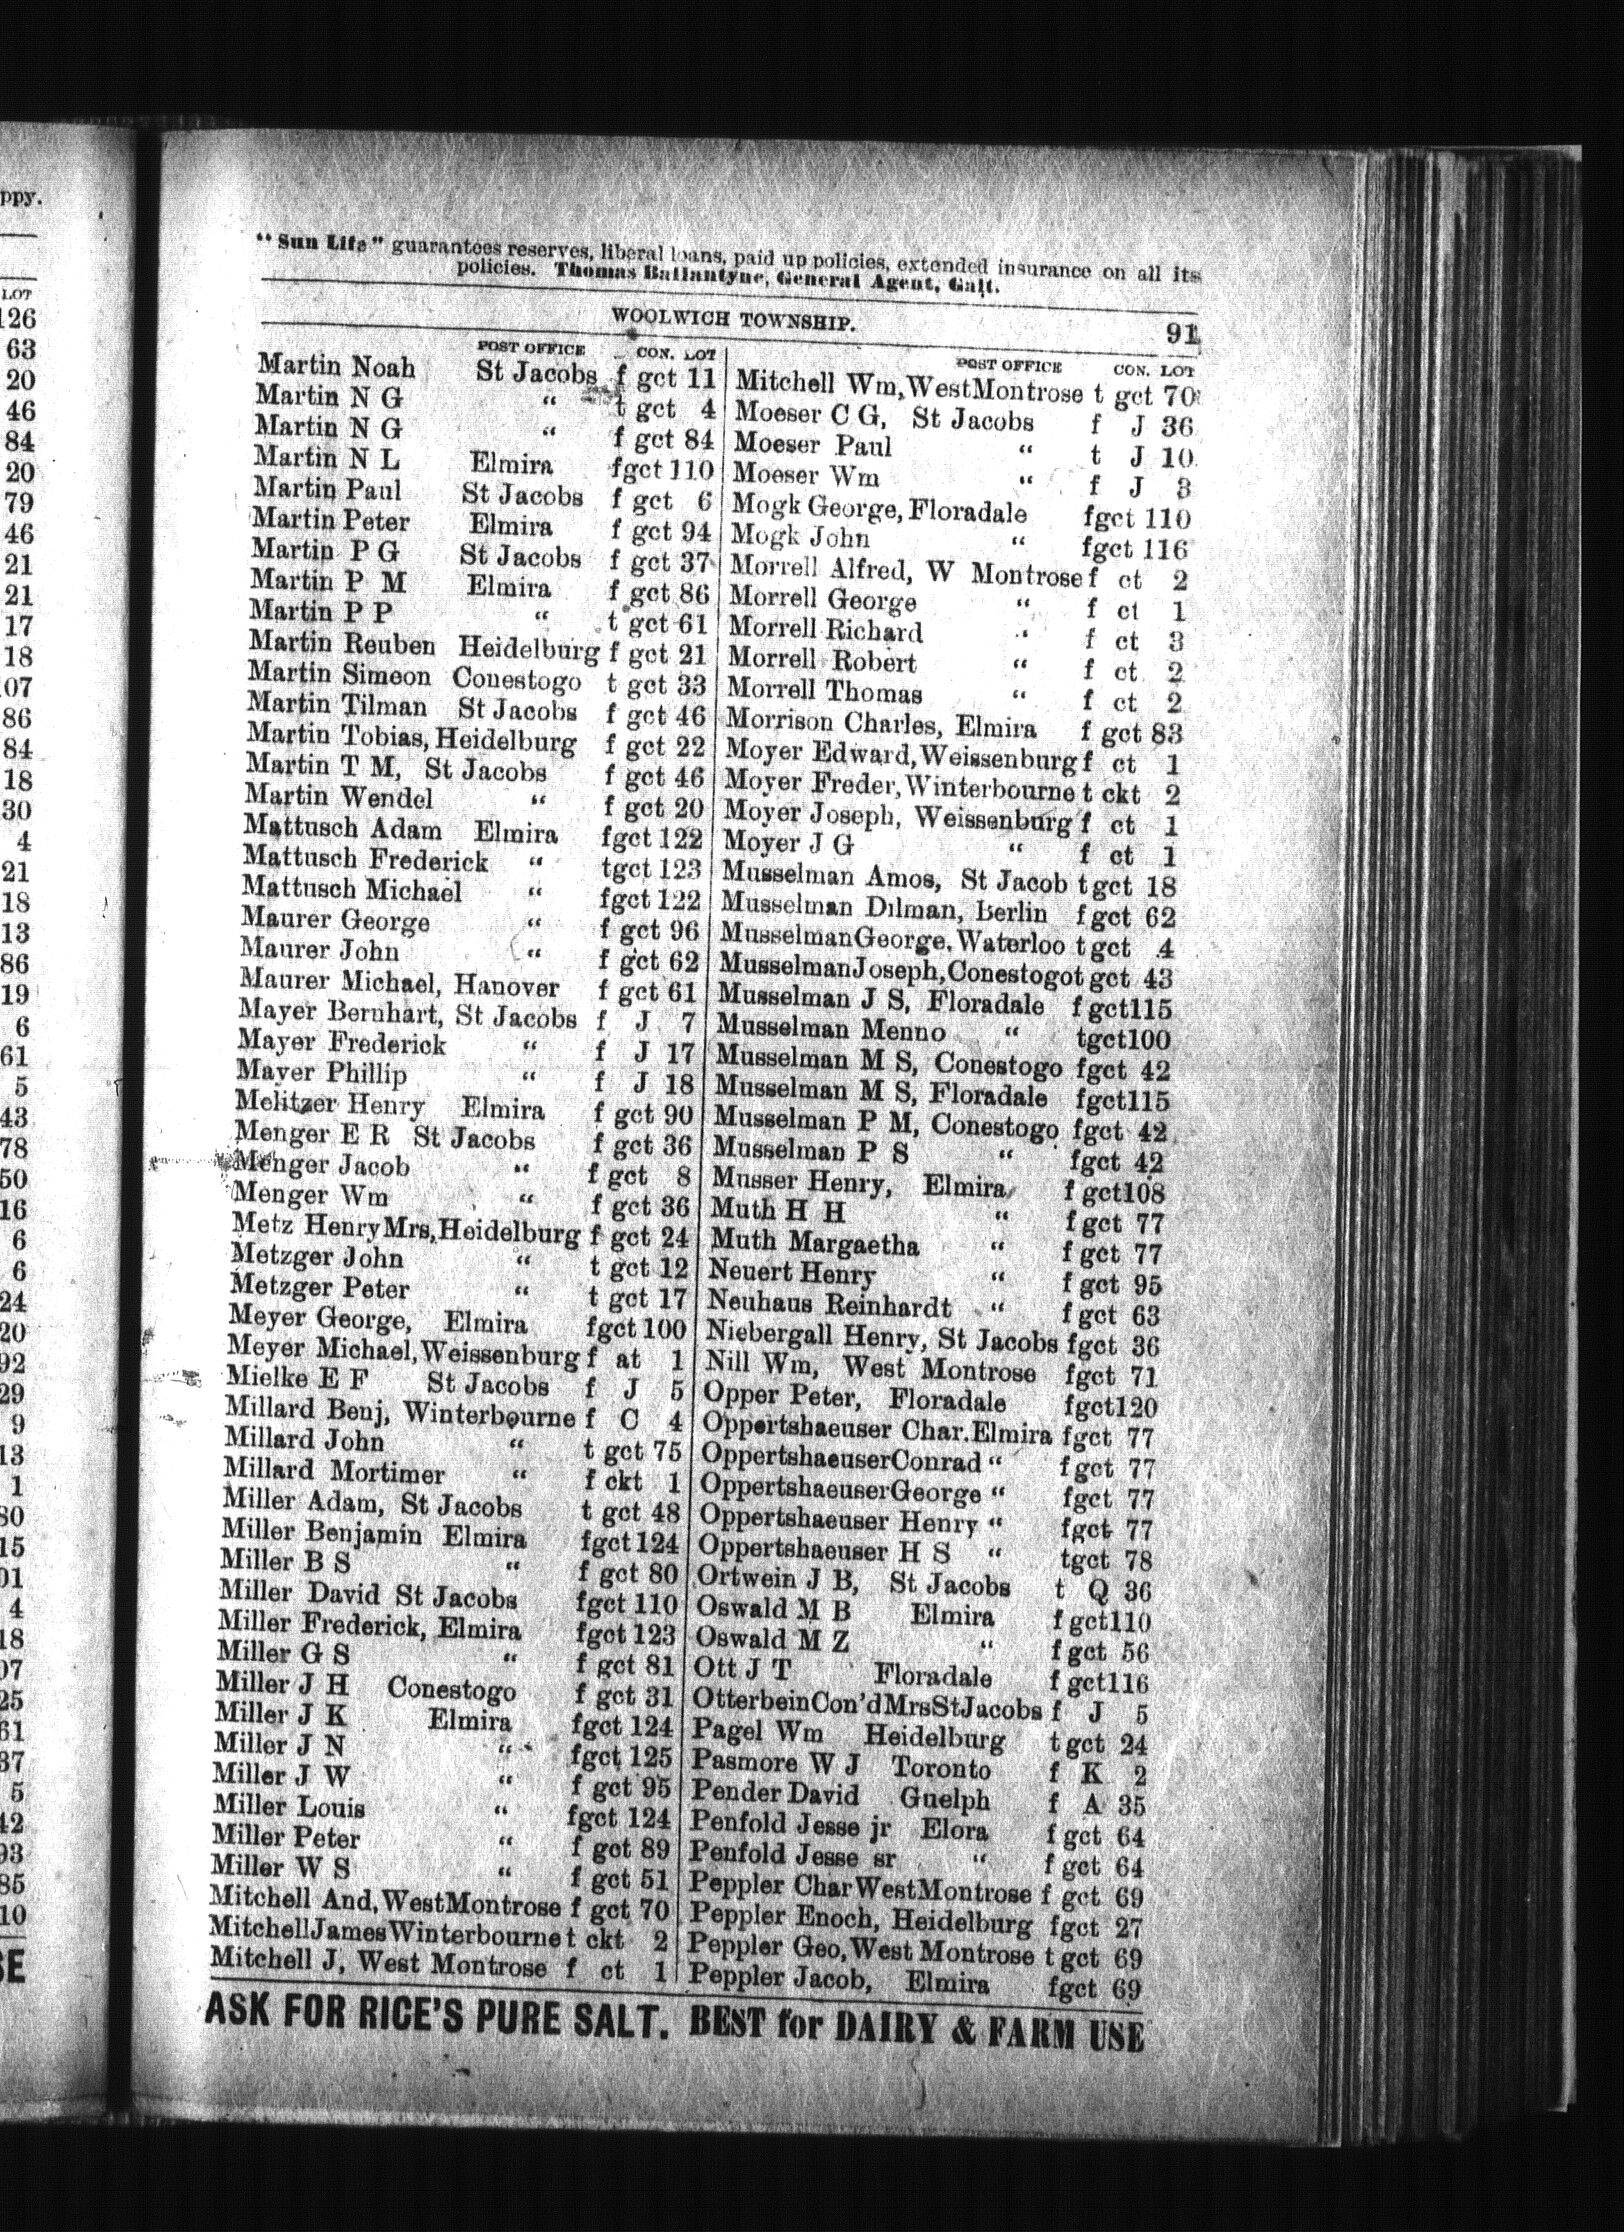 ppy.
LOT
126
63
20
46
84
20
79
46
21
21
17
18
07
86
84
18
30
4
21
18
13
86
19
6
61
5
43
78
50
16
6
6
24
20
92
29
9
13
1
30
15
01
4
18
07
25
61
37
5
42
93
85
10
SE
"Sun Life" guarantees reserves, liberal loans, paid up policies, extended insurance on all its
policies. Thomas Ballantyne, General Agent, Galt.
WOOLWICH TOWNSHIP. 91
POST OFFICE CON. LOT
Martin Noah St Jacobs f gct 11
Martin N G " t gct 4
Martin N G " f gct 84
Martin N L Elmira fgct 110
Martin Paul St Jacobs f gct 6
Martin Peter Elmira f gct 94
Martin P G St Jacobs f gct 37
Martin P M Elmira f gct 86
Martin P P " t gct 61
Martin Reuben Heidelburg f gct 21
Martin Simeon Conestogo t gct 33
Martin Tilman St Jacobs f gct 46
Martin Tobias, Heidelburg f gct 22
Martin T M, St Jacobs f gct 46
Martin Wendel " f gct 20
Mattusch Adam Elmira fgct 122
Mattusch Frederick " tgct 123
Mattusch Michael " fgct 122
Maurer George " f gct 96
Maurer John " f gct 62
Maurer Michael, Hanover f gct 61
Mayer Bernhart, St Jacobs f J 7
Mayer Frederick " f J 17
Mayer Phillip " f J 18
Melitzer Henry Elmira f gct 90
Menger E R St Jacobs f gct 36
Menger Jacob " f gct 8
Menger Wm " f gct 36
Metz Henry Mrs, Heidelburg f gct 24
Metzger John " t gct 12
Metzger Peter " t gct 17
Meyer George, Elmira fgct 100
Meyer Michael, Weissenburg f at 1
Mielke E F St Jacobs f J 5
Millard Benj, Winterbourne f C 4
Millard John " t gct 75
Millard Mortimer " f ckt 1
Miller Adam, St Jacobs t gct 48
Miller Benjamin Elmira fgct 124
Miller B S " f gct 80
Miller David St Jacobs fgct 110
Miller Frederick, Elmira fgct 123
Miller G S " f gct 81
Miller J H Conestogo f gct 31
Miller J K Elmira fgct 124
Miller J N " fgct 125
Miller J W " f gct 95
Miller Louis " fgct 124
Miller Peter " f gct 89
Miller W S " f gct 51
Mitchell And, WestMontrose f gct 70
MitchellJamesWinterbourne t ckt 2
Mitchell J, West Montrose f ct 1
POST OFFICE CON. LOT
Mitchell Wm, WestMontrose t gct 70
Moeser C G, St Jacobs f J 36
Moeser Paul " t J 10
Moeser Wm " f J 3
Mogk George, Floradale fgct 110
Mogk John " fgct 116
Morrell Alfred, W Montrose f ct 2
Morrell George " f ct 1
Morrell Richard " f ct 3
Morrell Robert " f ct 2
Morrell Thomas " f ct 2
Morrison Charles, Elmira f gct 83
Moyer Edward, Weissenburg f ct 1
Moyer Freder, Winterbourne t ckt 2
Moyer Joseph, Weissenburg f ct 1
Moyer J G " f ct 1
Musselman Amos, St Jacob tgct 18
Musselman Dilman, Berlin fgct 62
MusselmanGeorge, Waterloo tgct 4
MusselmanJoseph, Conestogo t gct 43
Musselman J S, Floradale f gct115
Musselman Menno " tgct100
Musselman M S, Conestogo fgct 42
Musselman M S, Floradale fgct115
Musselman P M, Conestogo fgct 42
Musselman P S " fgct 42
Musser Henry, Elmira f gct108
Muth H H " f gct 77
Muth Margaetha " f gct 77
Neuert Henry " f gct 95
Neuhaus Reinhardt " f gct 63
Niebergall Henry, St Jacobs fgct 36
Nill Wm, West Montrose fgct 71
Opper Peter, Floradale fgct120
Oppertshaeuser Char. Elmira fgct 77
OppertshaeuserConrad " f gct 77
OppertshaeuserGeorge " fgct 77
Oppertshaeuser Henry " fgct 77
Oppertshaeuser H S " tgct 78
Ortwein J B, St Jacobs t Q 36
Oswald M B Elmira f gct110
Oswald M Z " f gct 56
Ott J T Floradale f gct116
OtterbeinCon'dMrsStJacobs f J 5
Pagel Wm Heidelburg t gct 24
Pasmore W J Toronto f K 2
Pender David Guelph f A 35
Penfold Jesse jr Elora f gct 64
Penfold Jesse sr " f gct 64
Peppler Char WestMontrose f gct 69
Peppler Enoch, Heidelburg fgct 27
Peppler Geo, West Montrose t gct 69
Peppler Jacob, Elmira fgct 69
ASK FOR RICE'S PURE SALT. BEST for DAIRY & FARM USE